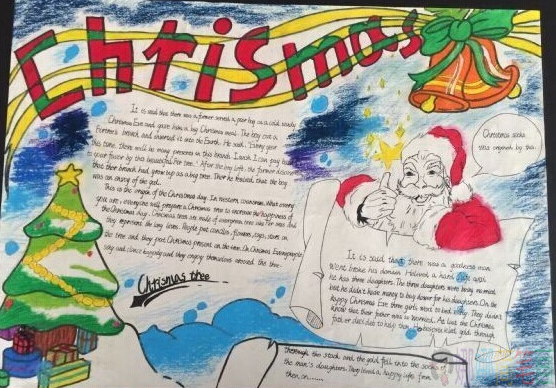 Christmas
It is said that there was a farmer served a poor boy in a cold snowy
Christmas Eve and gave him a big Christmas meal. The boy cut a
branch and inserted it into the Earth. He said, "Every year
this time, there will be many presents in this branch. I wish I can pay back
to your favor by this beautiful tree." After the boy left, the farmer discover
that their branch had grown up as a big tree. Then he realized, that the boy
was an of the god.
This is the origin of the Christmas day. In western countries, What
you are, everyone will prepare a Christmas tree to increase the happiness of
the Christmas day. Christmas trees are made of evergreen trees
they represent the long lives. People put candles, flowers, toys, stars on
the tree and they put Christmas present on the tree. On Christmas Eve, people
sing and dance happily and they enjoy themselves around the tree.
Chrismas tree
Christmas socks
was original by this.
It is said that there was a goodness man
Went broke his domain. Helived a hard life with
he has three daughters. The three daughters were being married
but he didn't have money to buy dower for his daughters. On the
happy Christmas Eve three girls went to bed They didn't
know that their father was so worried. At last the Christmas
father decided to help them. He gold through
the sock and the gold fell into the socks of
the man's daughters. They lived a happy life from
then on......